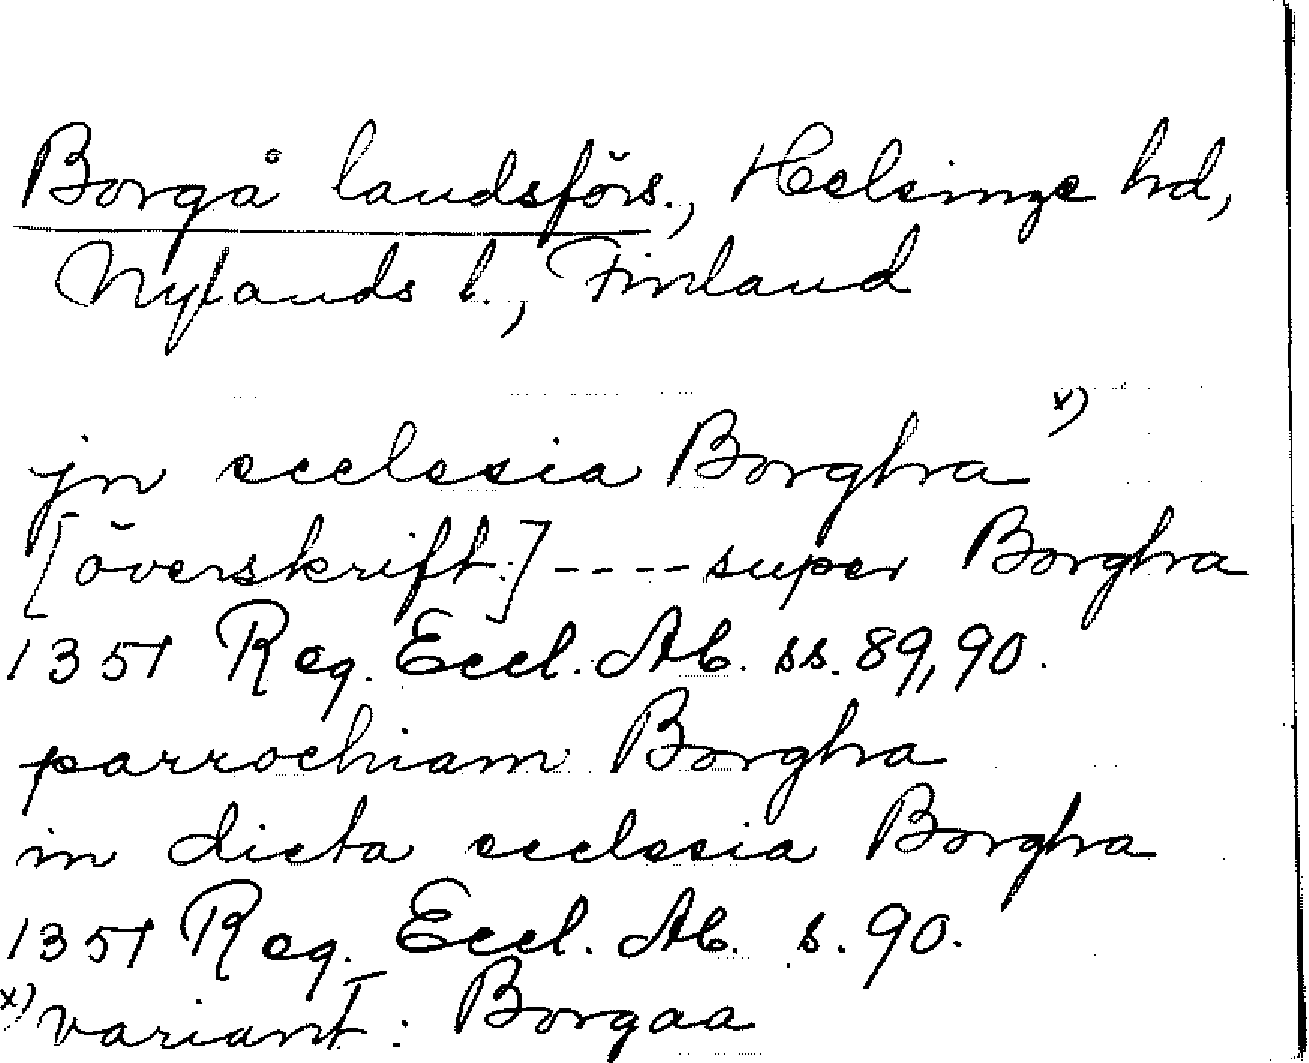 Borgå landsförs., Helsinge hd,
Nylands l., Finland
jn ecclesia Borgha x)
[överskrift:] ---- super Borgha
1351 Reg. Eccl. Ab. ss. 89, 90.
parrochiam Borgha
in dicta ecclesia Borgha
1351 Reg. Eccl. Ab. s. 90.
x) variant: Borgaa